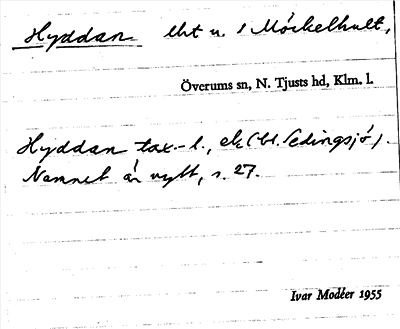 Hyddan lht u. Möckelhult,
Överums sn, N. Tjusts hd, Klm. l.
Hyddan tax.-l., ek (bl. Sedingsjö).
Namnet är nytt, s. 27.
Ivar Modéer 1955